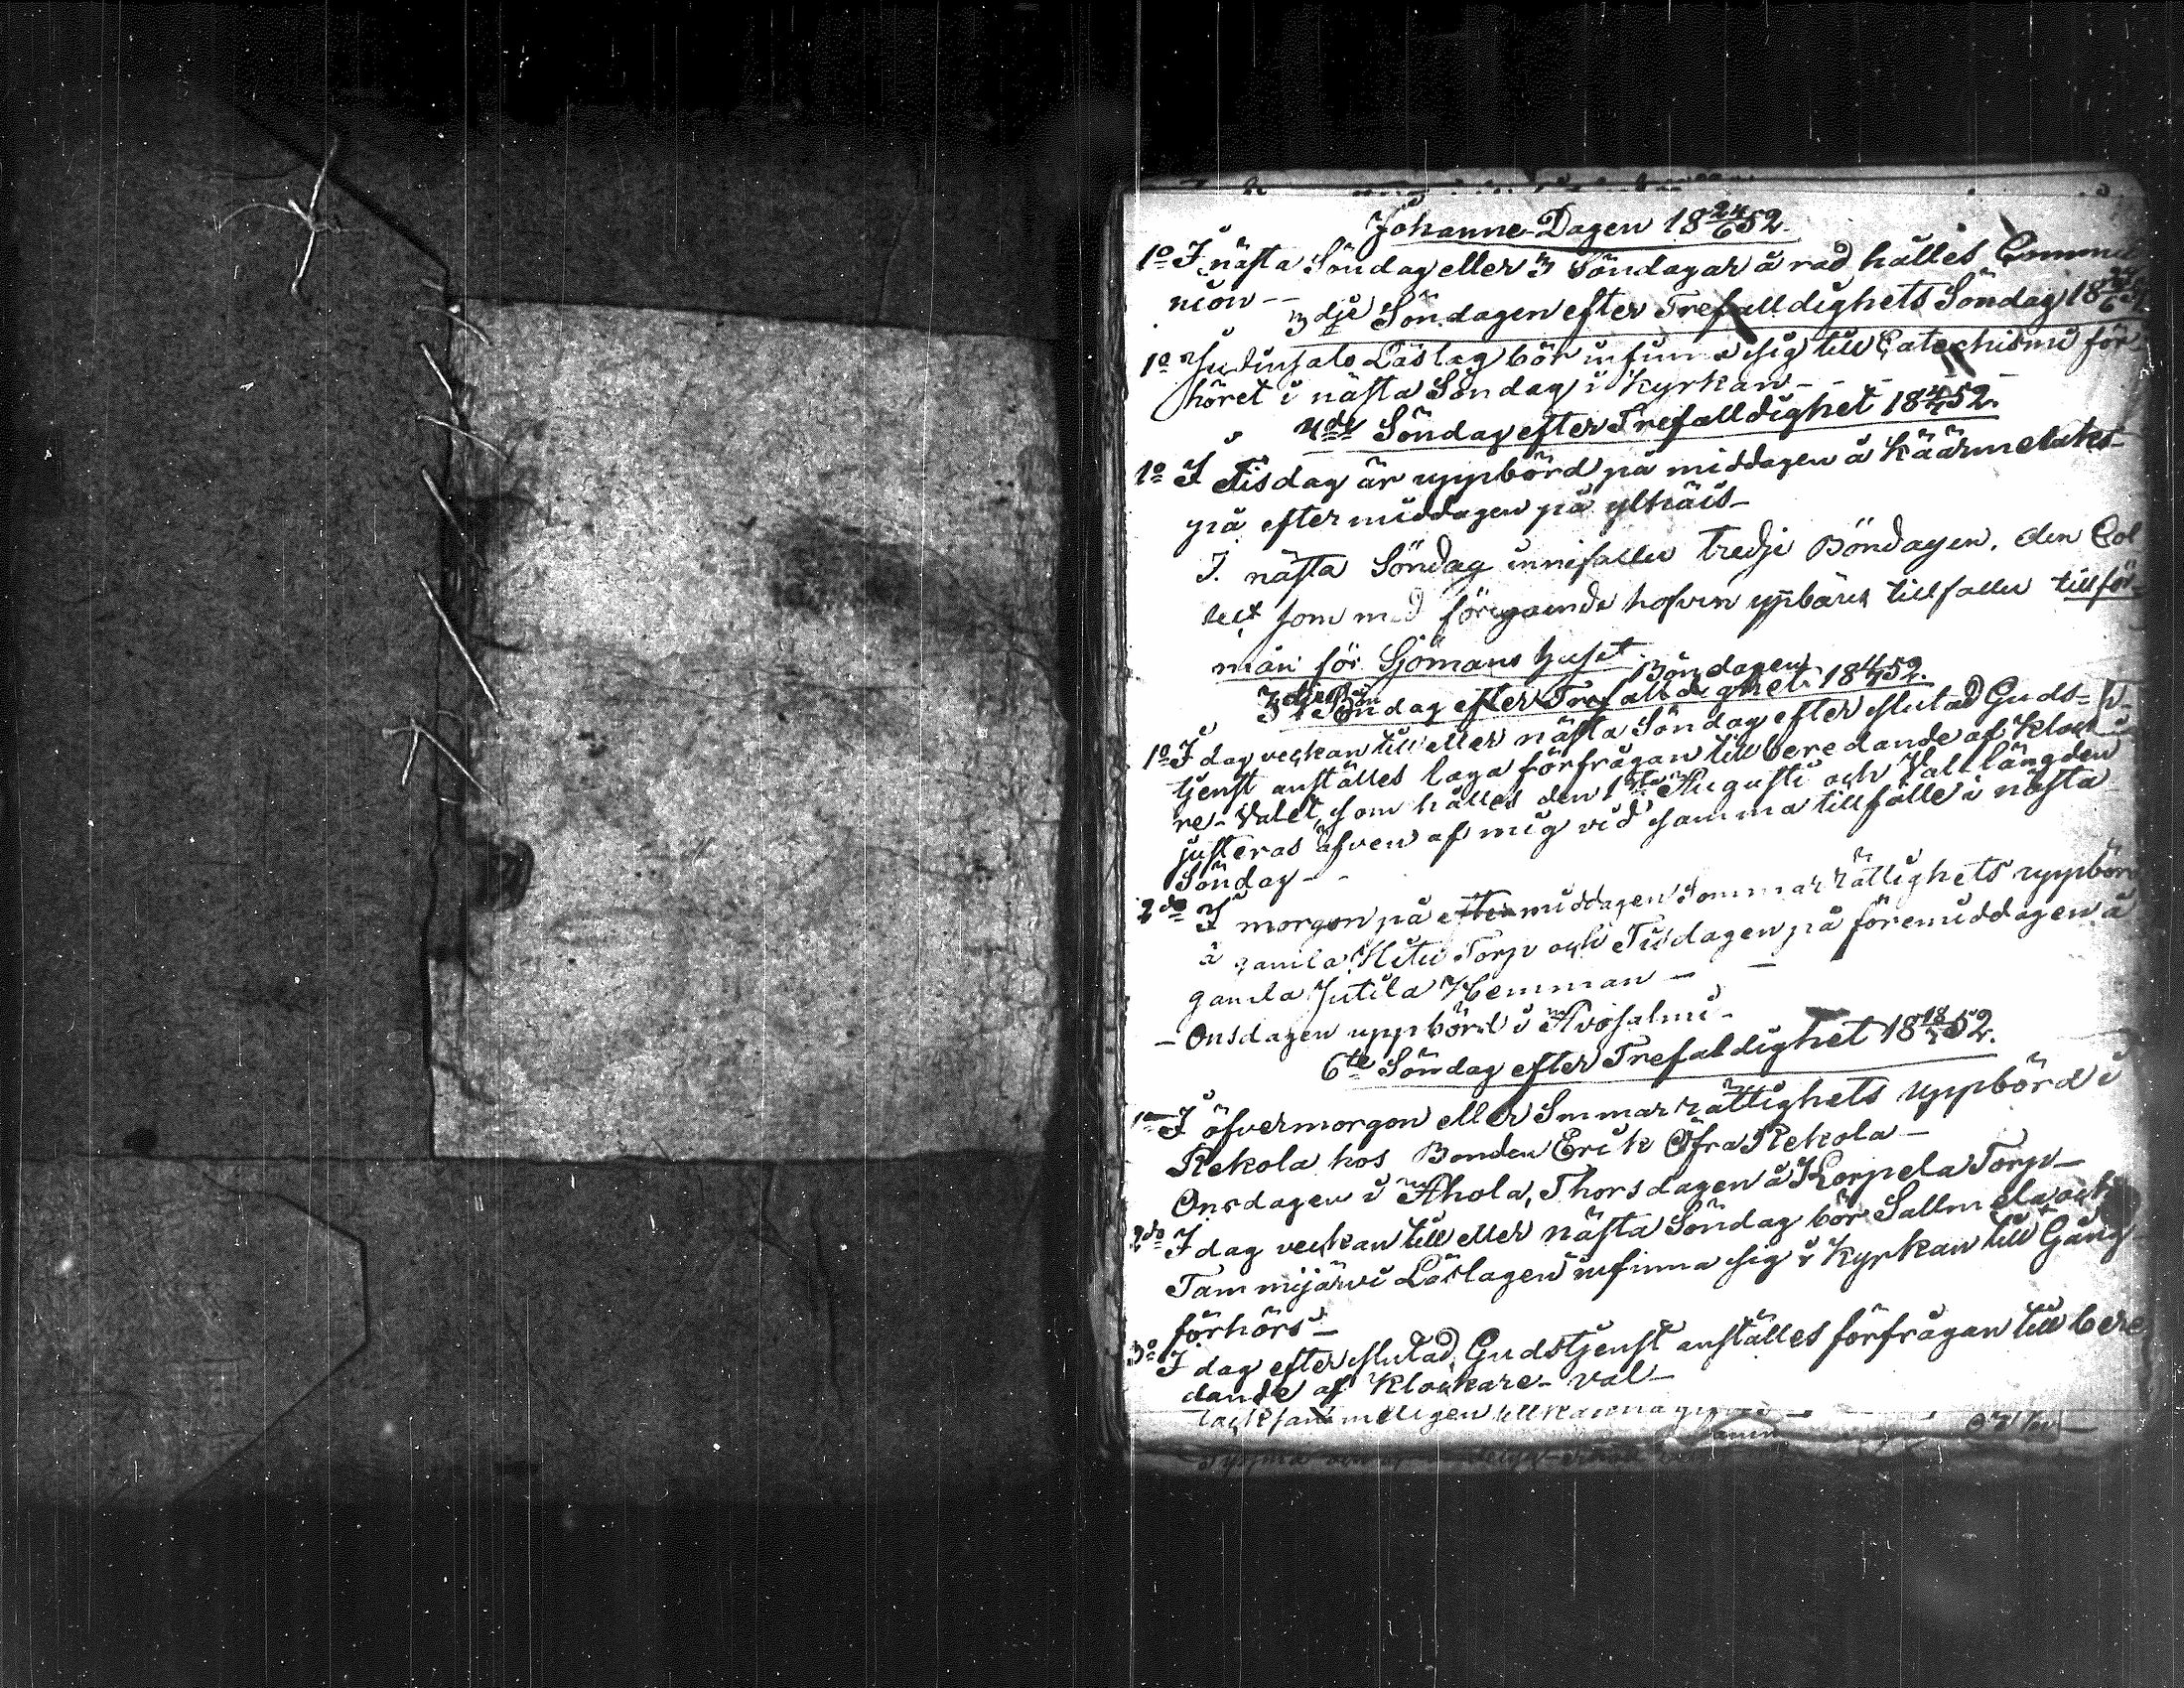 Johanne-Dagen 18 24/6 52.
1o I nästa Söndag eller 3 Söndagar å rad hålles Commu
nion --
3dje Söndagen efter Trefalldighets Söndag 18
1o Läslag bör infinna sig till Catechismi för
höret i nästa Söndag i Kyrkan - - -
4de Söndag efter Trefalldighet 18 4/7 52.
1o I Tisdag är uppbörd på middagen å Käärmelaks
på eftermiddagen på
I nästa Söndag innefaller tredje Böndagen. den Col
lect som med håfven uppbäres tillfaller tillför
mån för Sjömans huset.
Böndagen
3dje Bön
Söndag efter Trefalldighet 18 11/7 52.
1o I dag veckan till eller nästa Söndag efter slutad Guds-
tjenst anställes laga förfrågan till beredande af Klocka
re-Valet, som hålles den 1sta Augusti och Vallängden
justeras äfven af mig vid samma tillfälle i nästa
Söndag - -
2do I morgon på eftermiddagen Sommarrättighets uppbörd
å gamla Torp och Tisdagen på föremiddagen å
gamla Jutila Hemman -
- Onsdagen uppbörd i Avosalmi -
6te Söndag efter Trefaldighet 18 18/7 52.
1o I öfvermorgon eller Smmarrättighets uppbörd i
Rekola hos Bonden Erik Öfra Rekola -
Onsdagen i Ahola, Thorsdagen å Korpela Torp -
2do I dag veckan till eller nästa Söndag bör Sallmela och
Tammijärvi Läslagen infinna sig i Kyrkan till Gång
förhörs -
3o I dag efter slutad Gudstjenst anställes förfrågan till bere
dande af Klockare-val -